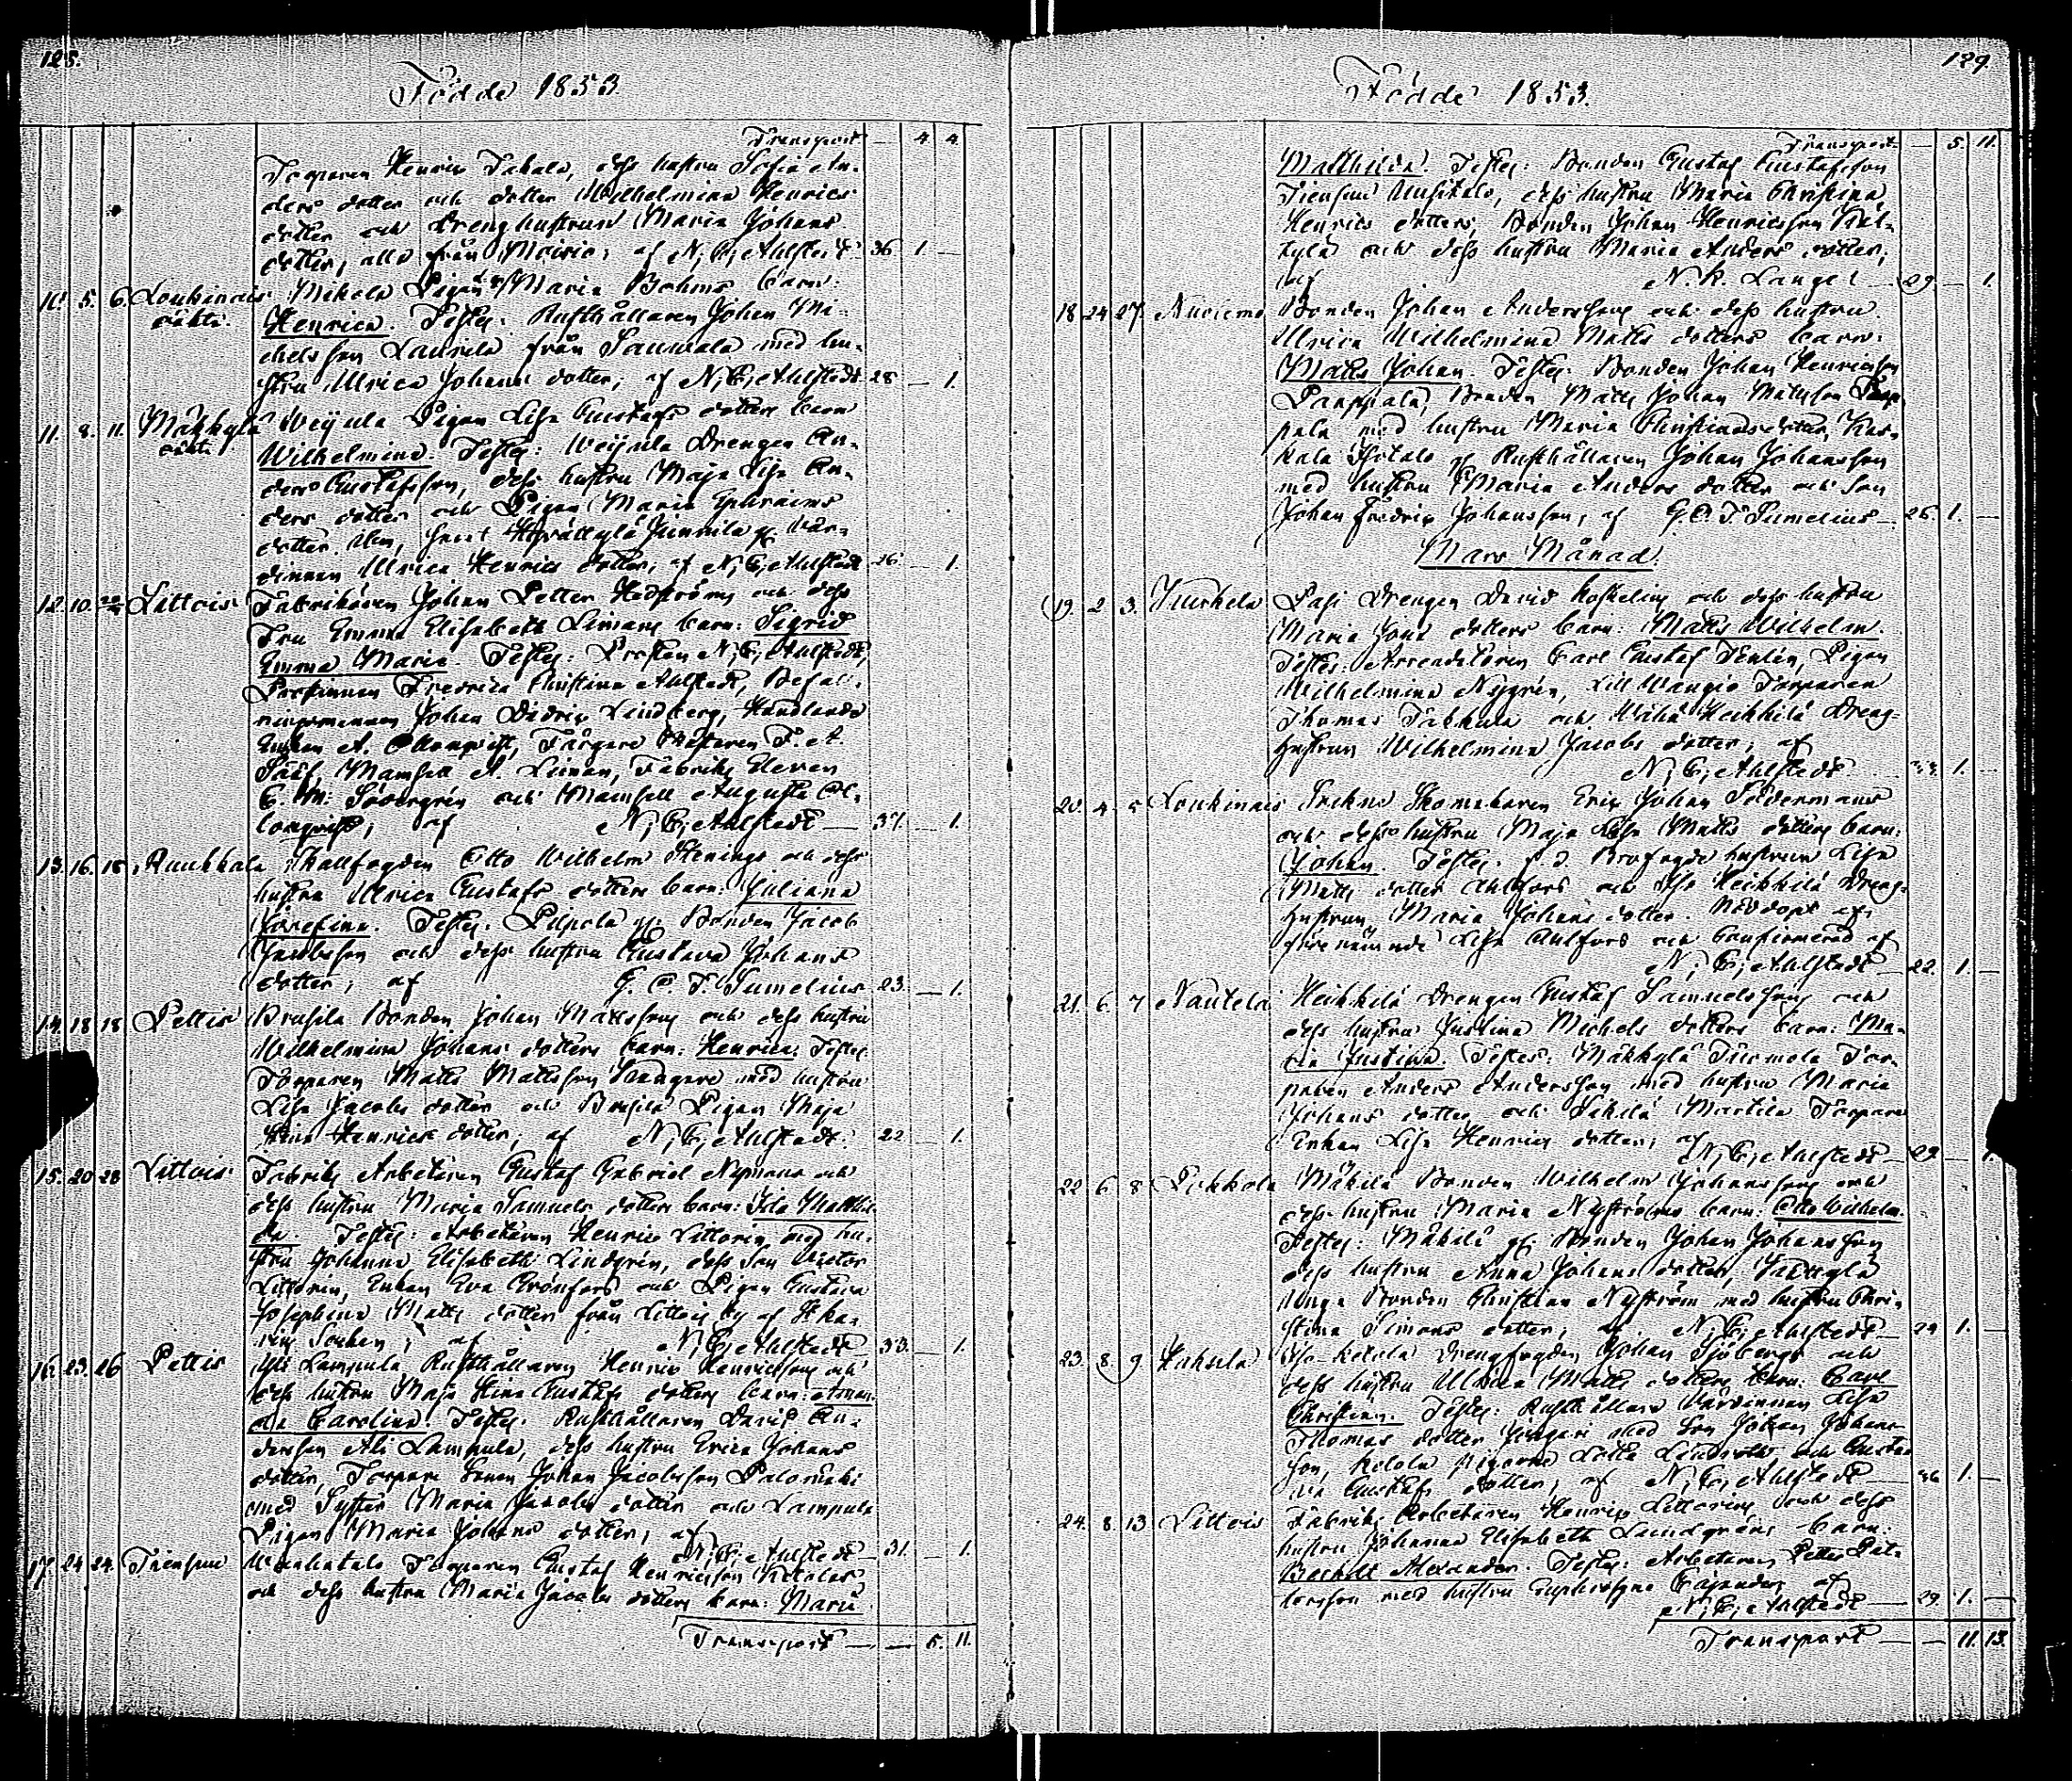 128.
Födde 1853.
Transport — 4. 4.
Torparen Henric Takala, dess hustru Sofia An-
ders dotter och dotter Wilhelmina Henrics
dotter och Drenghustrun Maria Johans
dotter, alla från Mairie; af N. C. Ahlstedt. 36. 1. —
10. 5. 6. Loukinais Mikola Pigan Maria Bohms barn:
oäkta. Henrica. Testes: Rusthållaren Johan Mi-
chelsson Laurila från Sauwala med hu-
stru Ulrica Johans dotter; af N. C. Ahlstedt. 28 — 1.
11. 8. 11. Mäkkylä Weijula Pigan Lisa Gustafs dotters barn
oäkta Wilhelmina. Testes: Weijula Drengen An-
ders Gustafsson, dess hustru Maja Lisa An-
ders dotter och Pigan Maria Ephraims
dotter, samt Junnila vär-
dinnan Ulrica Henrics dotter, af N. C. Ahlstedt 26 — 1.
12. 10. Littois Fabrikören Johan Petter Hedströms och dess
Fru Emma Elisabeth Limans barn: Sigrid
Emma Maria. Testes: Prosten N. C. Ahlstedt,
Prostinnan Fredrica Christina Ahlstedt, Befall-
ningsmannen Johan Didric Lindberg, Handlande
Enkan A. Ollonqvist, Färgare Mästaren F. A.
Sääf, Mamsell A. Liman, Fabriks Eleven
C. M. Södergrén och Mamsell Augusta Ol-
lonqvist; af N. C. Ahlstedt — 37. — 1.
13. 16. 18. Ruukkala Skallfogden Otto Wilhelm Stenings och dess
hustru Ulrica Gustafs dotters barn: Juliana
Josefina. Testes: Pilpola Bonden Jacob
Jacobsson och dess hustru Gustava Johans
dotter; af G. C. F. Sumelius 23. — 1.
14. 18 18 Pettis Brusila Bonden Johan Mattssons och dess hustru
Wilhelmina Johans dotters barn: Henrica. Testes:
Torparen Matts Mattsson med hustru
Lisa Jacobs dotter och Brusila Pigan Maja
Stina Henrics dotter; af N. C. Ahlstedt. 22 — 1.
15. 20 28 Littois Fabriks Arbetaren Gustaf Gabriel Nymans och
dess hustru Maria Samuels dotters barn: Ida Mathil-
da. Testes: Arbetaren Henric Littorin med hu-
stru Johanna Elisabeth Lindgrén, dess son Victor
Littorin, Enkan Eva Grönfors och Pigan Gustava
Josephina Matts dotter från Littois by af St Ka-
rins Socken; af N. C. Ahlstedt 33. — 1.
16. 23. 26 Pettis Yli Lampula Rusthållaren Henric Henricssons och
dess hustru Maja Stina Gustafs dotters barn: Aman-
da Carolina. Testes: Rusthållaren David An-
dersson Ali Lampula, dess hustru Erica Johans
dotter, Torpare Sonen Johan Jacobsson Palomäki
med Syster Maria Jacobs dotter och Lampula
Pigan Maria Johans dotter; af N. C. Ahlstedt — 31. — 1.
17. 24 24. Tiensuu Torparen Gustaf Henricsson
och dess hustru Maria Jacobs dotters barn: Maria
Transport — — 5. 11.
129.
Födde 1853.
Transport — 5. 11.
Mathilda. Testes: Bonden Gustaf Gustafsson
Tiensuu Uusitalo, dess hustru Maria Christina
Henrics dotter, Bonden Johan Henricsson
och dess hustru Maria Anders dotter;
af N. R. Lang 29. — 1.
18 24 27. Nuciemo Bonden Johan Anderssons och dess hustru
Ulrica Wilhelmina Matts dotters barn:
Matts Johan. Testes: Bonden Johan Henricsson
Pauppala, Bonden Matts Johan Mattsson
med hustru Maria Christinas dotter, Kar-
kala Isotalo Rusthållaren Johan Johansson
med hustru Maria Anders dotter och son
Johan Fredric Johansson; af G. C. F. Sumelius — 26. 1. —
Mars Månad.
19. 2 3. Kurkela Pasi Drengen David Koskelins och dess hustru
Maria Johans dotters barn: Matts Wilhelm.
Testes: Arrendatoren Carl Gustaf, Pigan
Wilhelmina Nygrén, Lill Wangio Torparen
Thomas Takkula och Heikkilä Dreng-
hustrun Wilhelmina Jacobs dotter; af
N. C. Ahlstedt. 33. 1. —
20. 4. 5 Loukinais Sockne Skomakaren Eric Johan Södermans
och dess hustru Maja Lisa Matts dotters barn:
Johan. Testes: f. d. Brofogde hustrun Lisa
Matts dotter Ahlfors och Heikkilä Dreng-
hustrun Maria Johans dotter. Nöddöpt af
förenämnde Lisa Ahlfors och Confirmerad af
N. C. Ahlstedt — 22. 1. —
21. 6. 7 Nautela Heikkilä Drengen Gustaf Samuelssons och
dess hustru Justina Michels dotters barn: Ma-
ria Justina. Testes: Mäkkylä Tuomola Tor-
paren Anders Andersson med hustru Maria
Johans dotter och Martila Torpare
Enkan Lisa Henrics dotter; af N. C. Ahlstedt — 29 — 1
22 6. 8 Pokkola Mäkilä Bonden Wilhelm Johanssons och
dess hustru Maria Nyströms barn: Otto Wilhelm.
Testes: Mäkilä Bonden Johan Johansson
dess hustru Anna Johans dotter,
unga Bonden Christian Nyström med hustru Chri-
stina Simons dotter; af N. C. Ahlstedt — 24 1. —
23. 8. 9 Hakula Iso-Ketola Drengfogden Johan Sjöbergs och
dess hustru Ulrica Matts dotters barn: Carl
Christian. Testes: Rusthållare Värdinnan Lisa
Thomas dotter med Son Johan Johans-
son, Ketola Pigorna Lotta och Gusta-
va Gustafs dotter; af N. C. Ahlstedt — 36 1. —
24. 8. 13 Littois Fabriks Arbetaren Henric Littorins och dess
hustru Johanna Elisabeth Lundgréns barn:
Berndt Alexander. Testes: Arbetaren Petter Pet-
tersson med hustru Euphrosyne Cajander; af
N. C. Ahlstedt — 29. 1. —
Transport — — 11. 13.